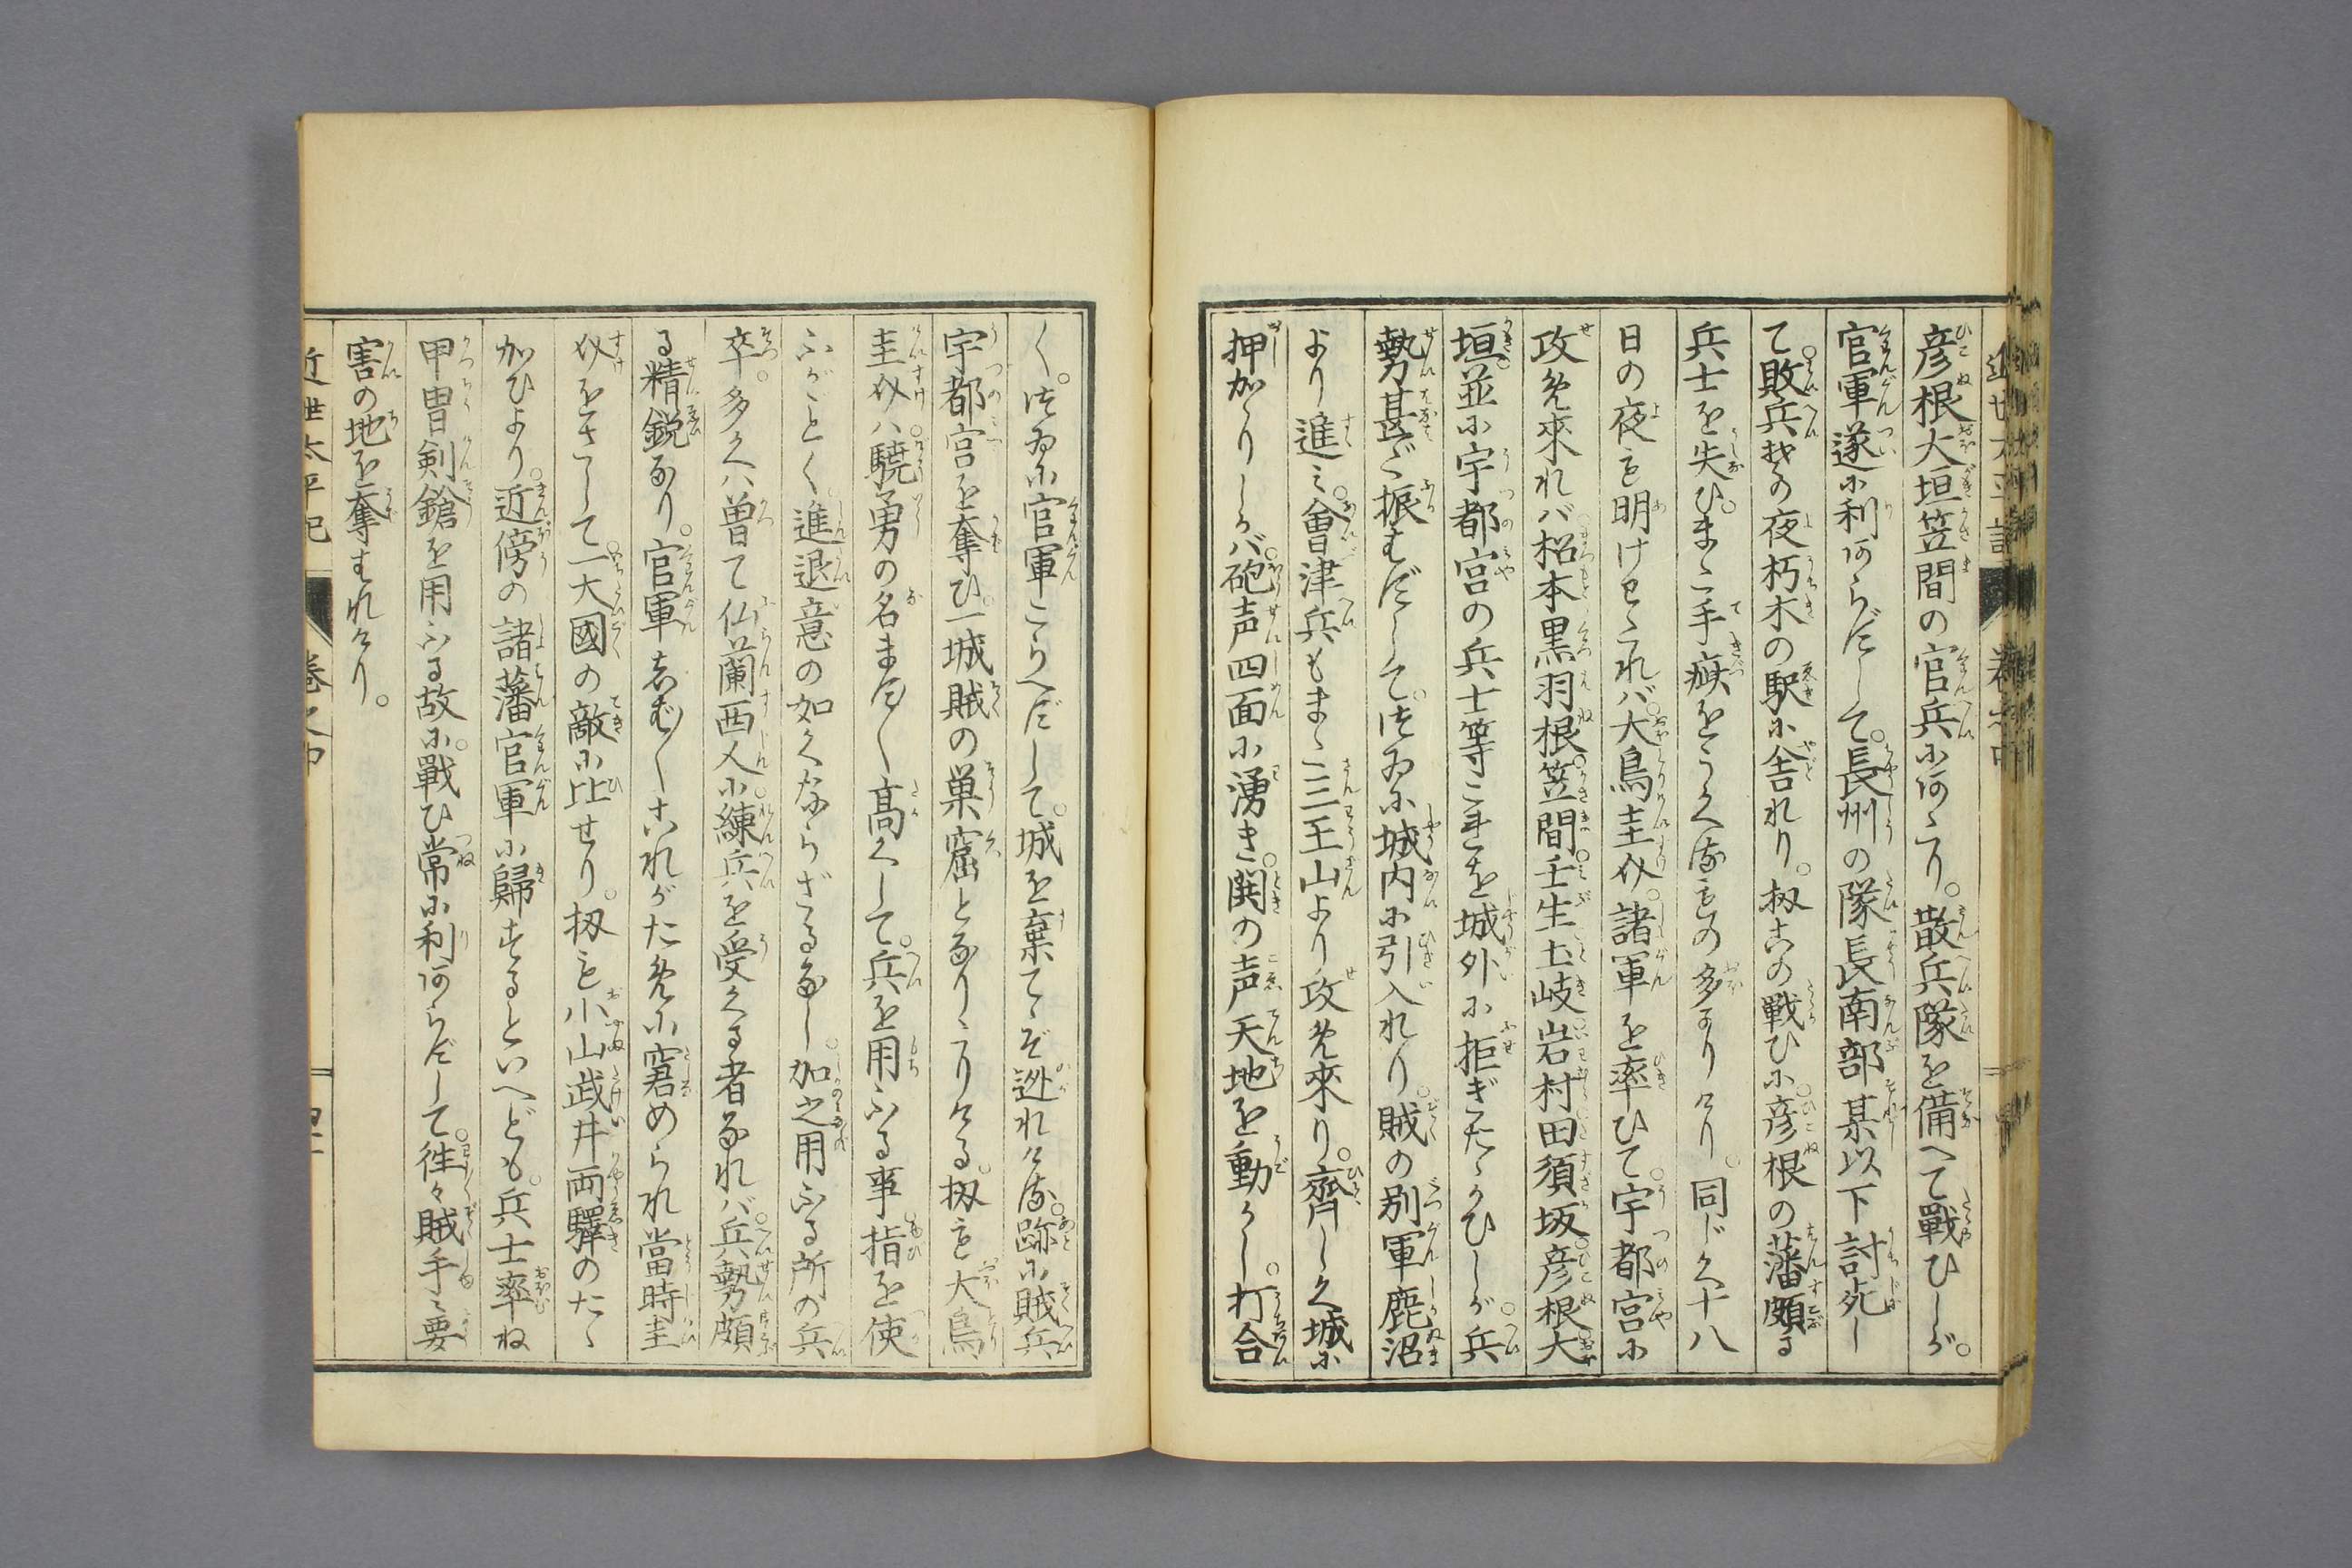 彦根大垣笠間の官兵に何ゝり。散兵隊を備へて戰ひしが。
官軍遂に利あらずして。長州の隊長南部某以下討死し
て敗兵其の夜朽木の駅に舎れり。扨此の戰ひに彦根の藩頗る
兵士を失ひ。まゝ手疵をうくるもの多かりけり。同じく十八
日の夜も明けわたれバ。大鳥圭介。諸軍を率ひて。宇都宮に
攻め來れバ松本黒羽根。笠間。壬生土岐岩村田須坂。彦根大
垣。並に宇都宮の兵士等これを城外に拒ぎたゝかひしが。兵
勢甚だ振はずして。つゐに城内に引入れり。賊の別軍鹿沼
より進ミ。會津兵もまた三王山より攻め來り。齊しく城に
押かゝりしかバ。砲声四面に湧き。鬨の声天地を動かし。打合
く。つゐに官軍こらへずして。城を棄てゝぞ迯れける。跡に賊兵
宇都宮を奪ひ。一城賊の巣窟となりゝりける。扨も大鳥
圭介ハ。驍勇の名まだ〱高くして。兵を用ふる事。指を使
ふがごとく。進退意の如くならざるなし。加之用ふる所の兵
卒。多くハ曽て仏蘭西人に練兵を受くる者なれバ。兵勢頗
る精鋭なり。官軍しば〱これがために窘められ當時圭
介をさして。一大國の敵に比せり。扨も小山武井両驛のたゝ
かひより。近傍の諸藩官軍に歸するといへども。兵士率ね
甲冑剣鎗を用ふる故に。戰ひ常に利あらずして。往々賊手に要
害の地を奪はれけり。
近世太平記　巻之中